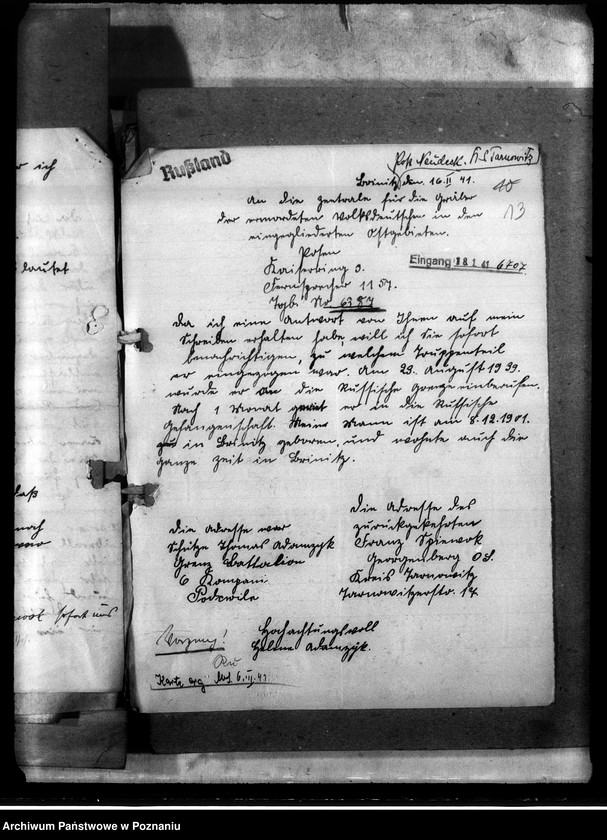 r ich
lautet
daß
noch
sofort uns
Rußland
Post Neudeck. Kr. Tarnowitz
Brinitz den 16.II 41.
40
13
An die Zentrale für die Gräber
der ermordeten Volksdeutschen in den
eingegliederten Ostgebieten.
Posen
Kaiserring 3.
Fernsprecher 1157.
Tgb. Nr. 6387
Eingang 18.1.41 6707
Da ich eine Antwort von Ihnen auf mein
Schreiben erhalten habe, will ich Sie sofort
benachrichtigen, zu welchem Truppenteil
er eingezogen war. Am 29. August 1939.
wurde er an die Russische Grenze einberufen.
Nach 1 Monat geriet er in die Russische
Gefangenschaft. Meine Mann ist am 8.12.1901.
in Brinitz geboren, und wohnte auch die
ganze Zeit in Brinitz.
Die Adresse war
Schütze Thomas Adamzyk
Grenz Battalion
6 Kompani
Podzwile
Die Adresse des
zurückgekehrten
Franz Spiewok
Georgenberg OS.
Kreis Tarnowitz
Tarnowitzerstr. 14
Hochachtungsvoll
Helene Adamzyk.
Vorgang!
Karte erg. 6.III.41
Archiwum Państwowe w Poznaniu